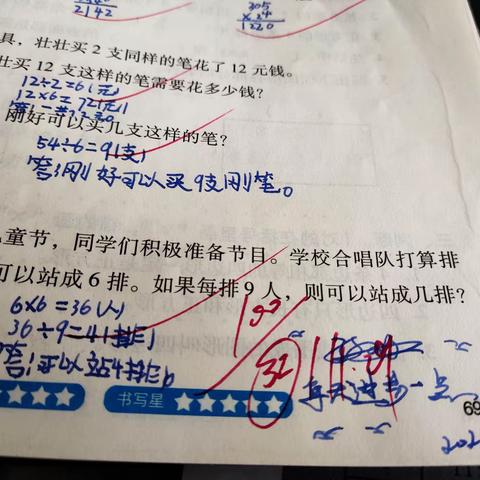 2142
305
×24
1220
具，壮壮买 2 支同样的笔花了 12 元钱。
壮买 12 支这样的笔需要花多少钱？
12÷2=6(元)
12×6=72(元)
刚好可以买几支这样的笔？
54÷6=9(支)
答:刚好可以买9支刚笔。
童节，同学们积极准备节目。学校合唱队打算排
可以站成 6 排。如果每排 9 人，则可以站成几排？
6×6=36(人)
36÷9=4(排)
答:可以站4排。
书写星
每天进步一点
69